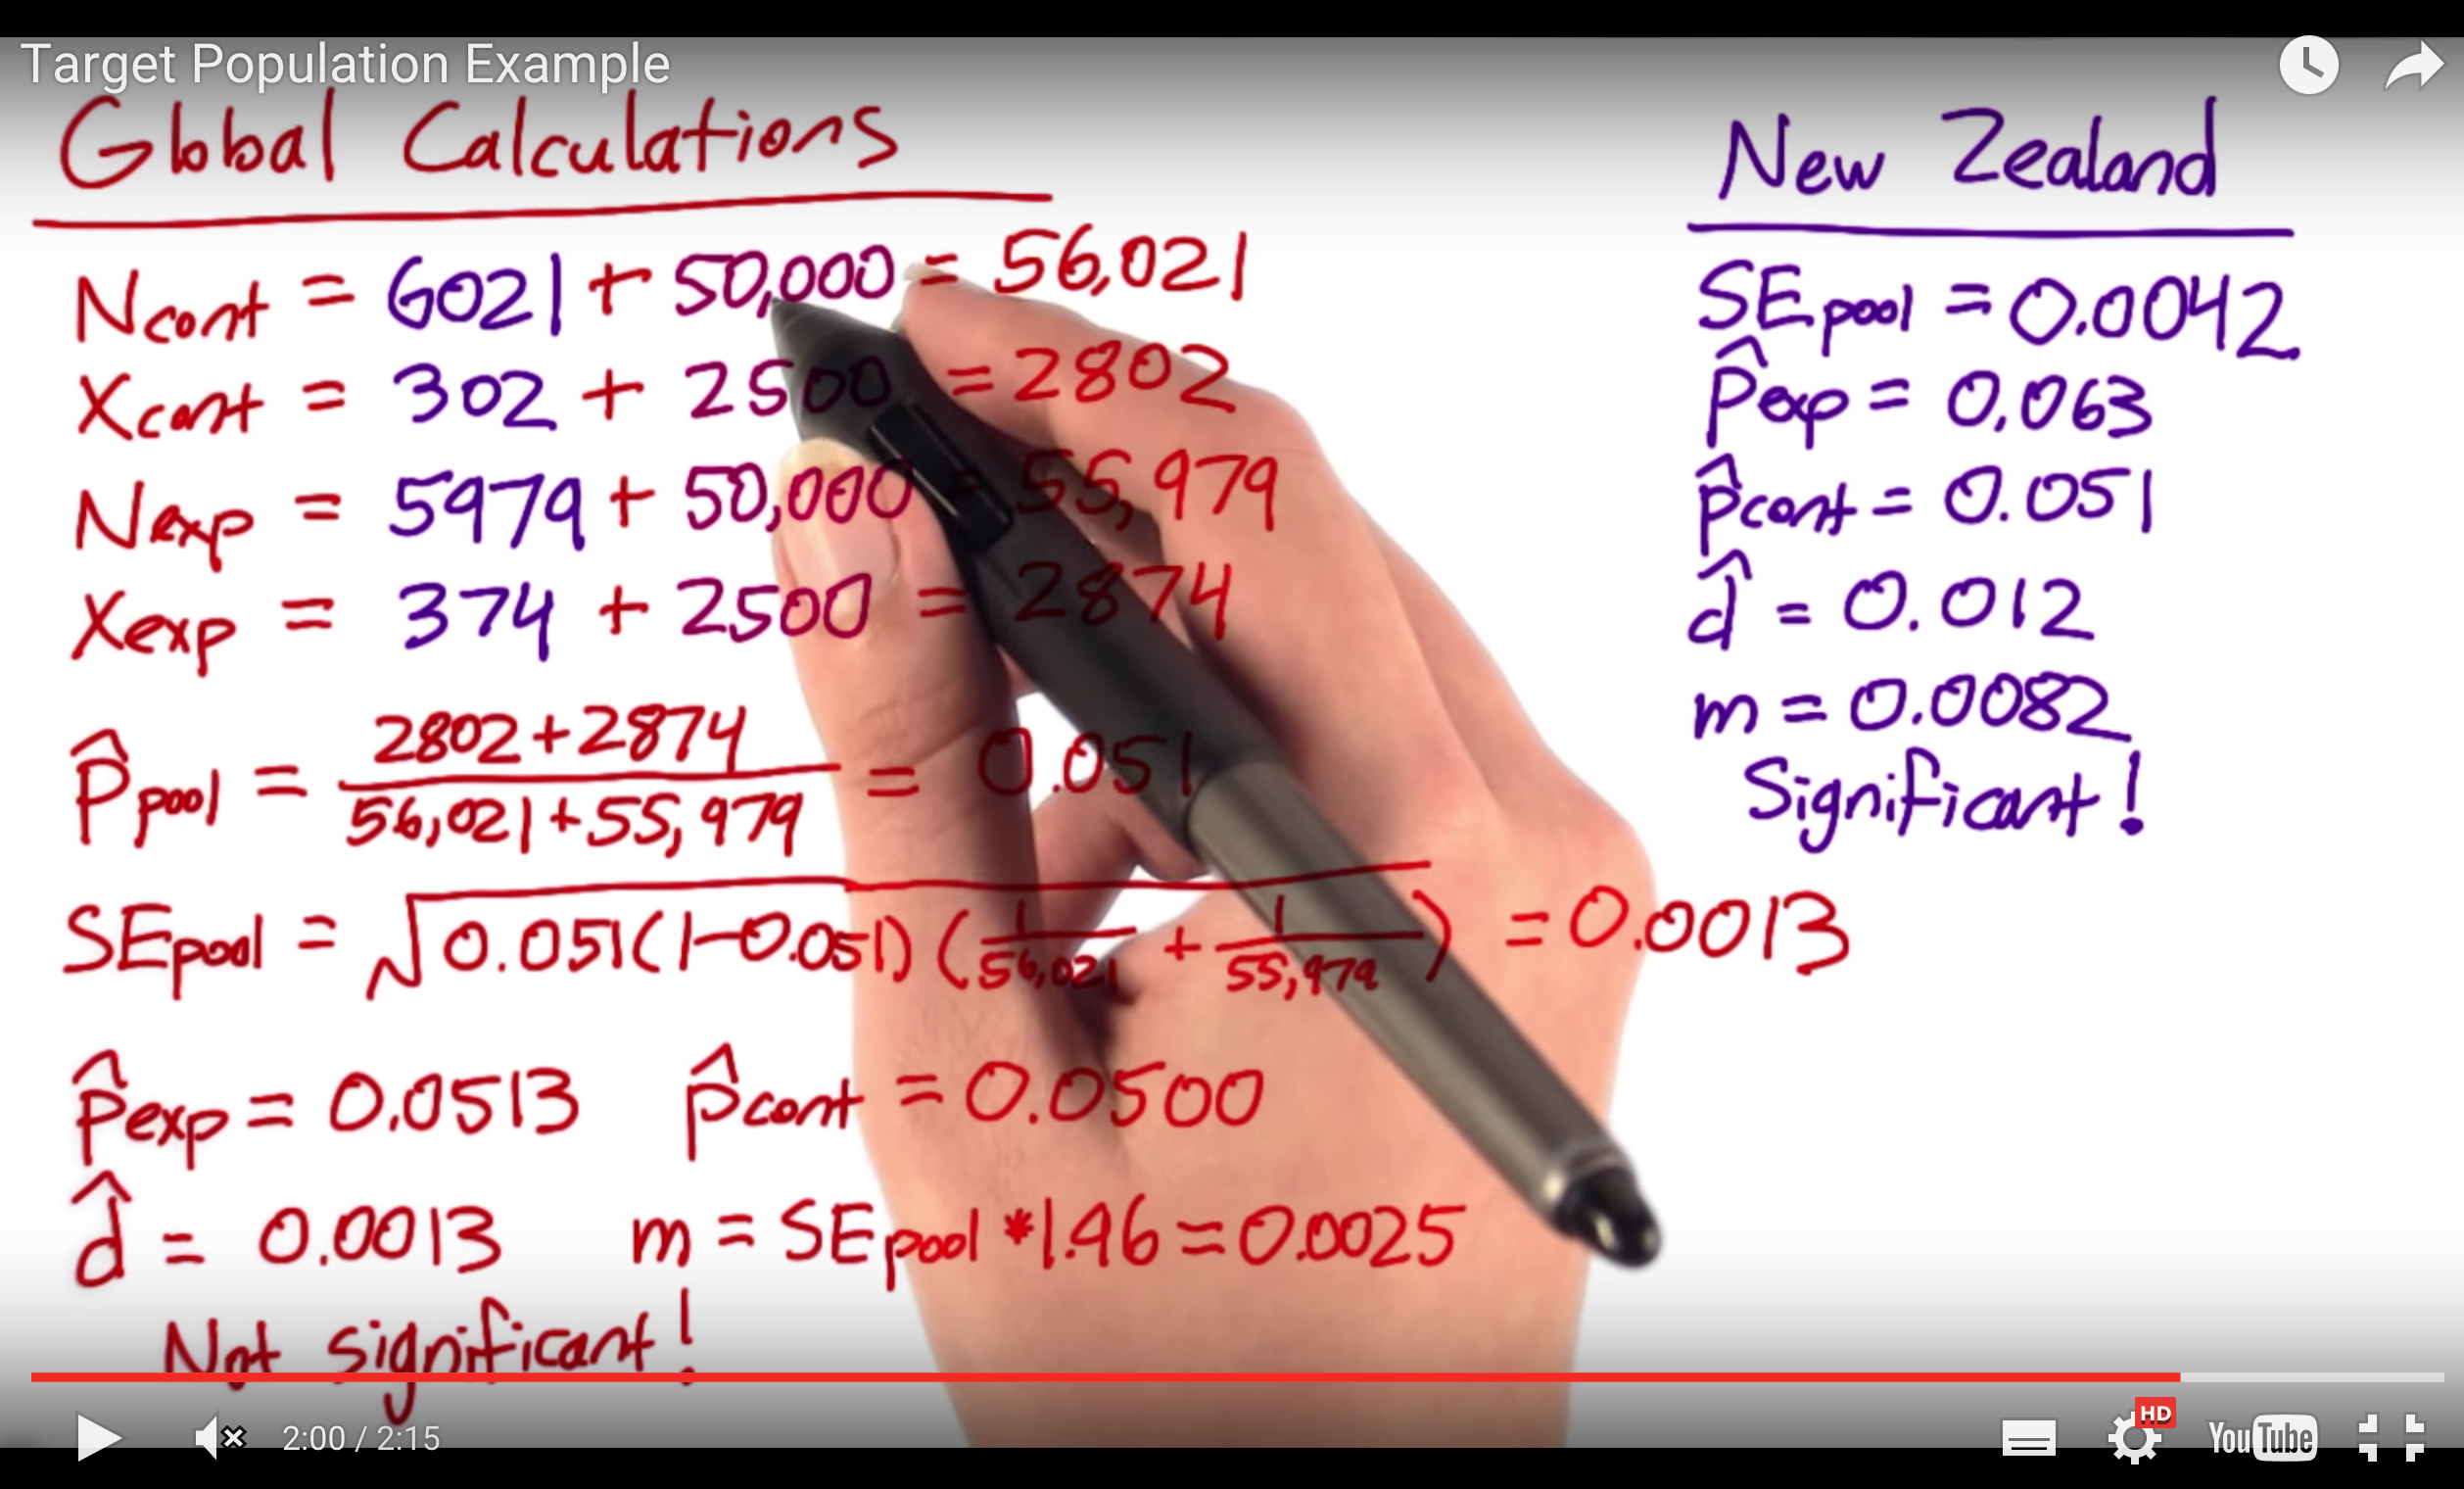 Target Population Example
Global Calculations
Ncont = 6021 + 50,000 = 56,021
Xcont = 302 + 2500 = 2802
Nexp = 5979 + 50,000 = 55,979
Xexp = 374 + 2500 = 2874
p̂pool = 2802+2874 / 56,021+55,979 = 0.051
SEpool = √0.051(1-0.051) (1/56,021 + 1/55,979) = 0.0013
p̂exp = 0.0513 p̂cont = 0.0500
d̂ = 0.0013 m = SEpool *1.96 = 0.0025
Not significant!
New Zealand
SEpool = 0.0042
p̂exp = 0.063
p̂cont = 0.051
d̂ = 0.012
m = 0.0082
Significant!
2:00 / 2:15
HD
YouTube